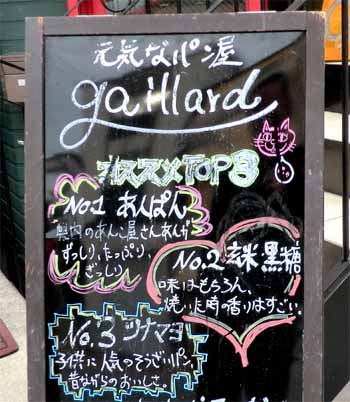 元気なパン屋
gaillard
オススメTOP3
No.1 あんぱん
県内のあんこ屋さんあんが
ずっしり、たっぷり、
ぎっしり
No.2 玄米黒糖
味はもちろん、
焼いた時の香りはすごい。
No.3 ツナマヨ
子供に人気のそうざいパン、
昔ながらのおいしさ。